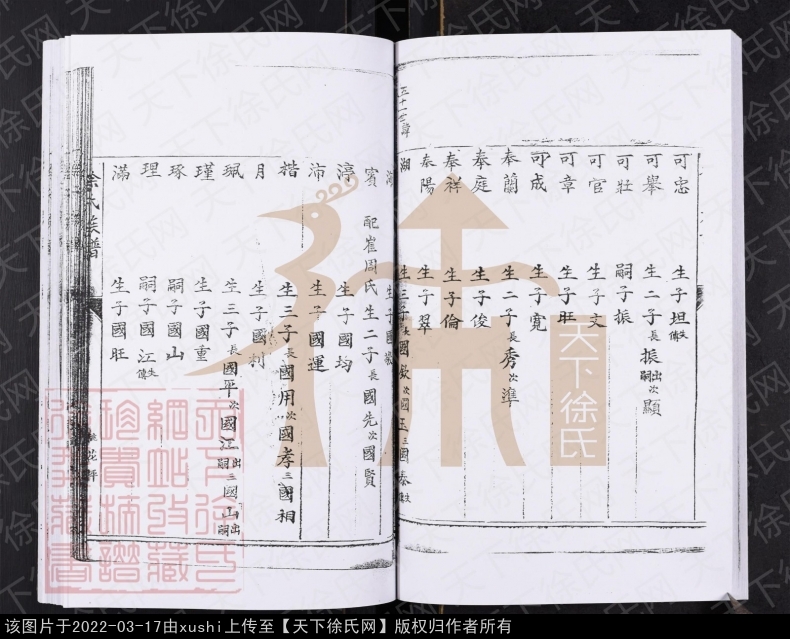 五十一世諱
可忠 生子坦失傳
可舉 生二子長振出嗣次顯
可壯 嗣子振
可官 生子文
可章 生子旺
可成 生子寬
奉蘭 生二子長秀次準
奉庭 生子俊
奉祥 生子倫
奉陽 生子翠
湖 生三子長國欽次國玉三國泰失傳
生子國
賓 配崔周氏生二子長國先次國賢
渟 生子國均
沛 生子國運
楷 生三子長國用次國孝三國相
月 生子國利
珮 生三子長國平次國江出嗣三國山出嗣
瑾 生子國重
琢 嗣子國山
理 嗣子國江失傳
滿 生子國旺
徐氏族譜
桃花坪
天下徐氏
天下徐氏网
该图片于2022-03-17由xushi上传至【天下徐氏网】版权归作者所有